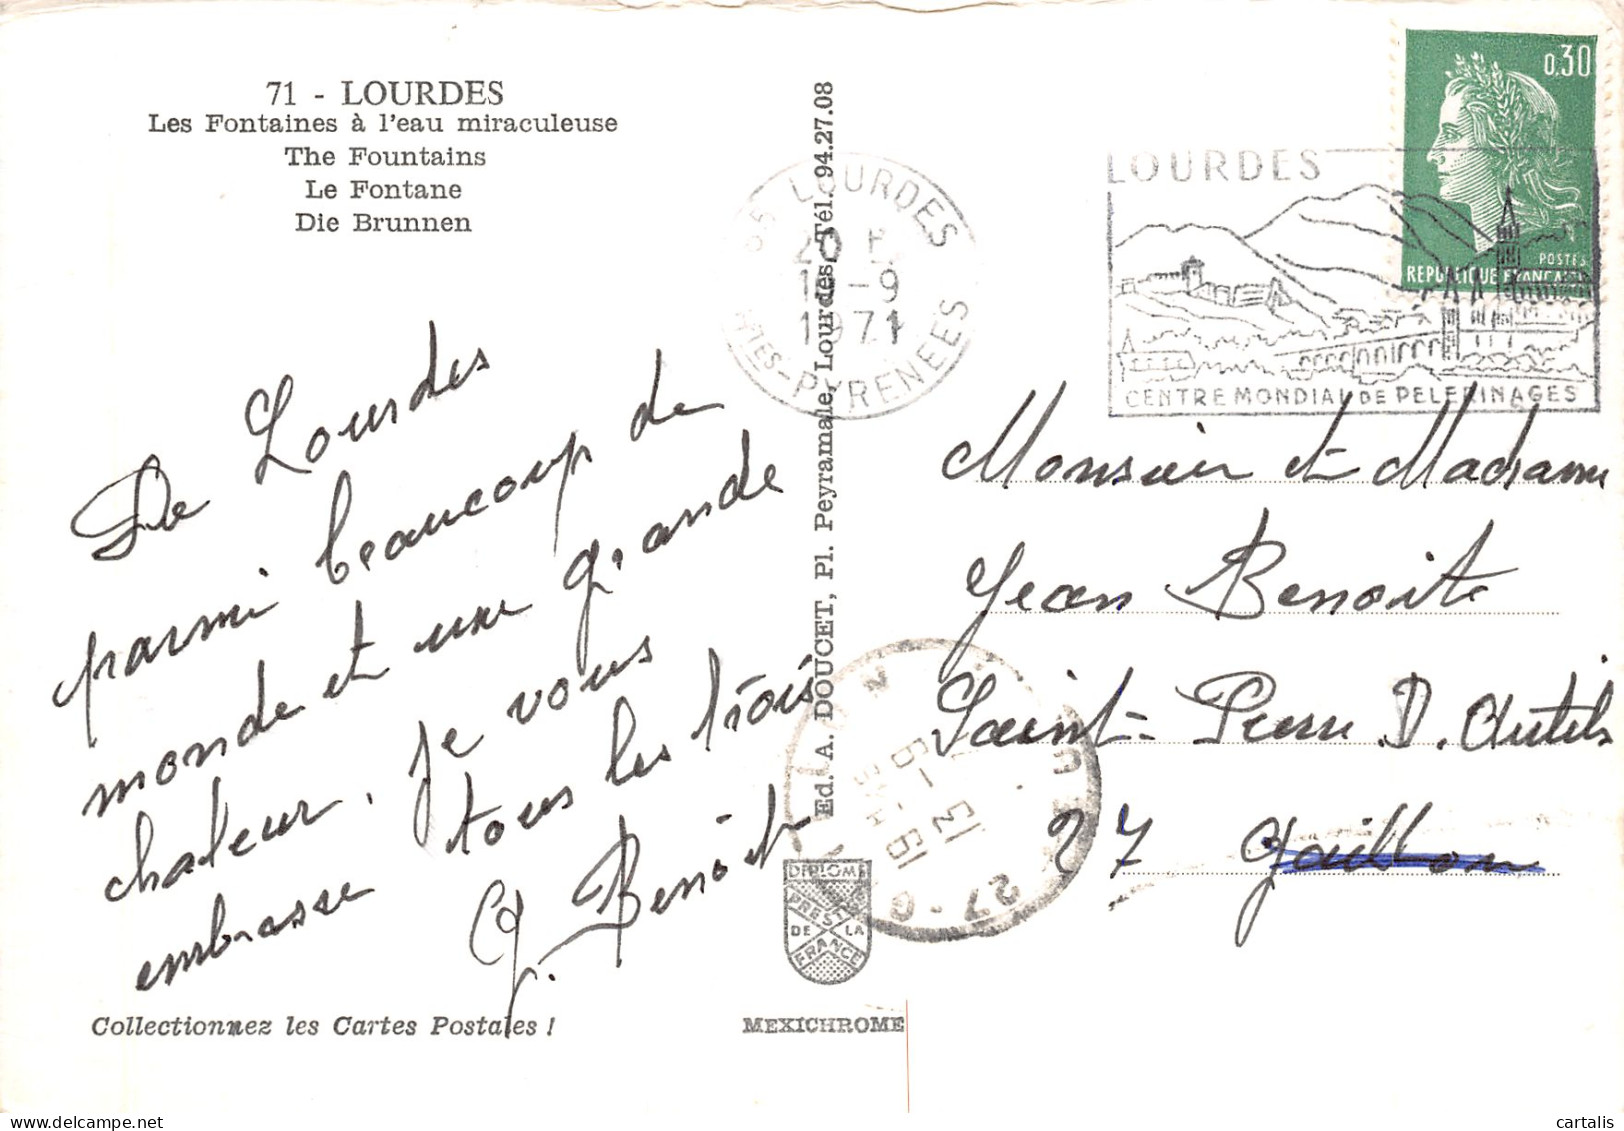 71 - LOURDES
Les Fontaines à l'eau miraculeuse
The Fountains
Le Fontane
Die Brunnen
De Lourdes
parmi beaucoup de
monde et une grande
chaleur. je vous
embrasse tous les trois
G. Benoît
Collectionnez les Cartes Postales !
Ed. A. DOUCET, Pl. Peyramale, Lourdes, Tél. 94.27.08
DIPLOME
PREST
DE LA
FRANCE
MEXICHROME
65 LOURDES
-9
1971
HTES-PYRENEES
LOURDES
CENTRE MONDIAL DE PELERINAGES
0,30
POSTES
REPUBLIQUE FRANCAISE
Monsieur et Madame
Jean Benoite
Saint-Pierre D. Autils
27 Gaillon
cartalis
delcampe.net